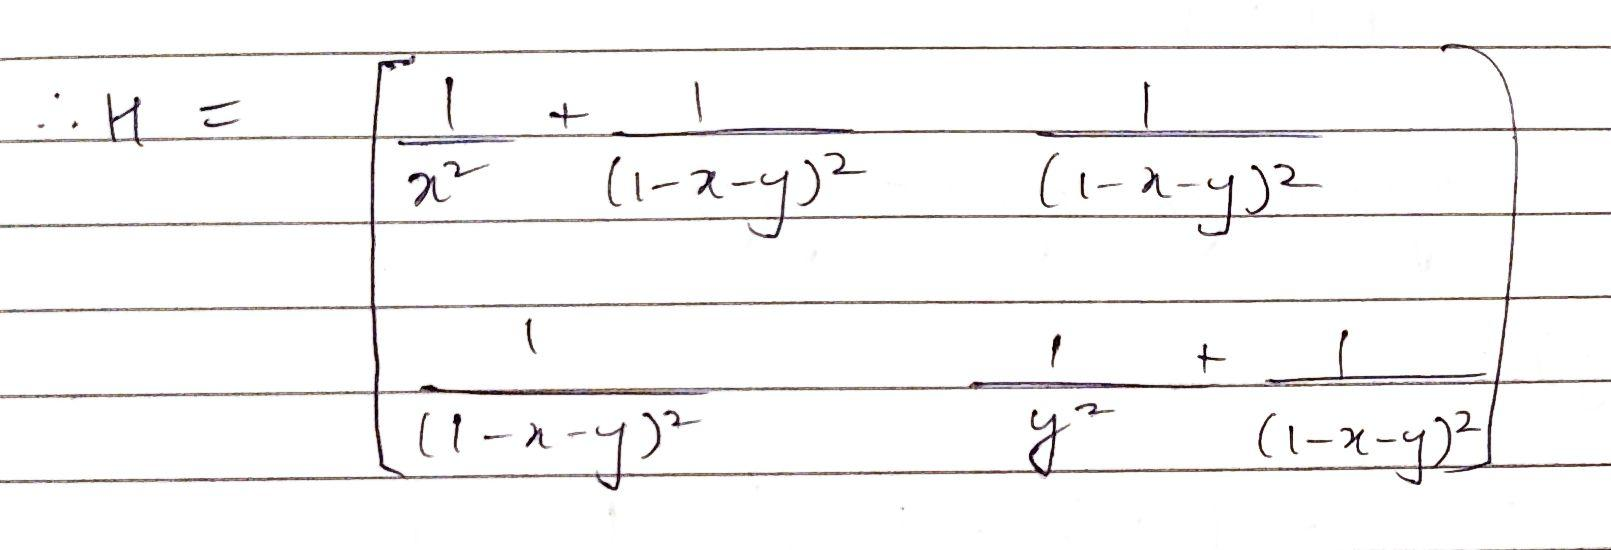 ∴ H = [ 1/x² + 1/(1-x-y)²    1/(1-x-y)²
1/(1-x-y)²    1/y² + 1/(1-x-y)² ]